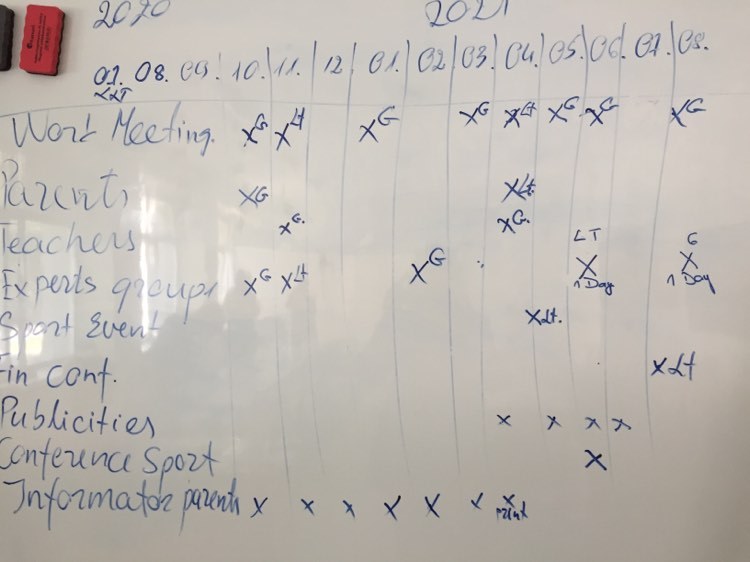 2020 2021
07. 08. 09. 10. 11. 12 01. 02 03. 04. 05. 06. 07. 08.
LLT
Work Meeting. XG XLt XG XG XLt XG XG XG
Parents XG XLt.
Teachers XG. XG.
LT G
Experts groups XG XLt XG X X
1 Day 1 Day
Sport Event XLt.
Fin conf. XLt
Publicities X X X X
Conference Sport X
Informator parents X X X X X X X
print